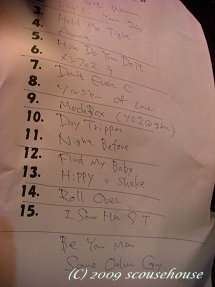 3.
4. Hold Me Tight
5. Anna
6. How Do You Do It
7.
8. Don't Ever C
9. of Love
10. MockBox
11. Day Tripper
12. Night Before
13. Find My Baby
14. Hippy Shake
15. Roll Over
I Saw Her S T
Be You Man
Some Other Guy
(C) 2009 scousehouse